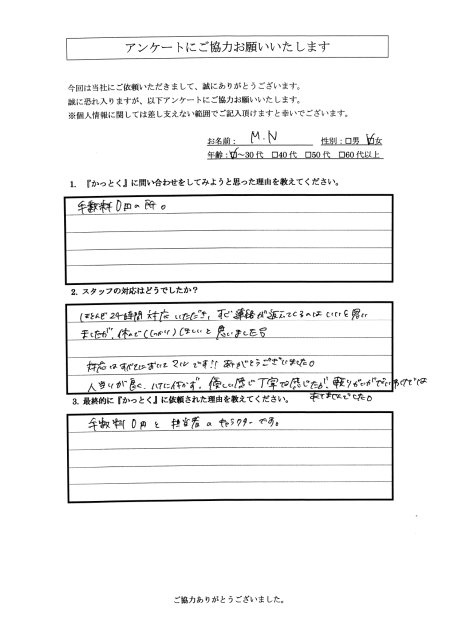 アンケートにご協力お願いいたします
今回は当社にご依頼いただきまして、誠にありがとうございます。
誠に恐れ入りますが、以下アンケートにご協力お願いいたします。
※個人情報に関しては差し支えない範囲でご記入頂けますと幸いでございます。
お名前： M.N 性別：□男 ☑女
年齢：☑～30代 □40代 □50代 □60代以上
1. 『かっとく』に問い合わせをしてみようと思った理由を教えてください。
手数料0円の所。
2. スタッフの対応はどうでしたか？
ほとんど24時間対応いただき、すぐ連絡が返ってくるのはいいと思い
ましたが、休んで(しっかり)ほしいと思いました
対応はすべてにおいてマルです!! ありがとうございました。
人当りが良く、優しい感じ丁寧な感じだが、
3. 最終的に『かっとく』に依頼された理由を教えてください。
手数料0円と担当者のキャラクターです。
ご協力ありがとうございました。